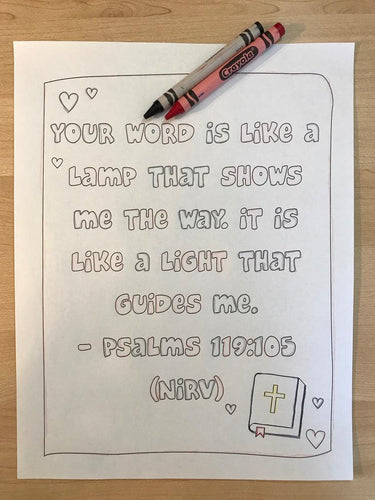 Crayola
YOUR WORD is Like a
Lamp THAT SHOWS
me THE WAY. iT iS
Like a LiGHT THAT
GUiDeS me.
- PSaLmS 119:105
(NiRV)